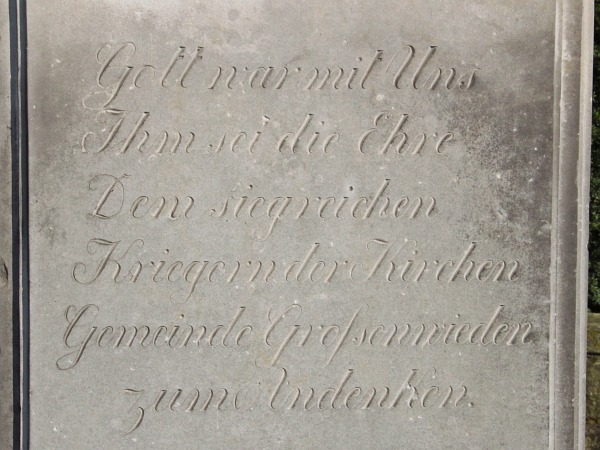 Gott war mit Uns
Ihm sei die Ehre
Dem siegreichen
Kriegern der Kirchen
Gemeinde Großenwieden
zum Andenken.